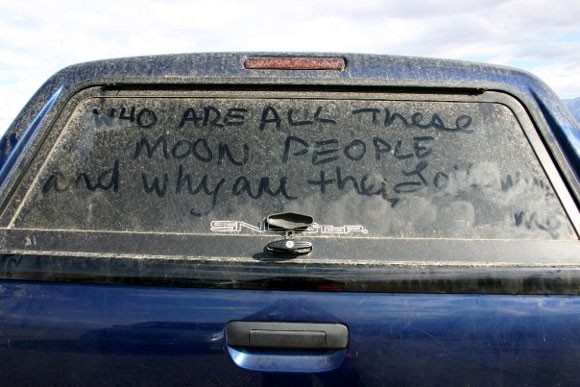 WHO ARE ALL These
MOON PEOPLE
and why are they following
me